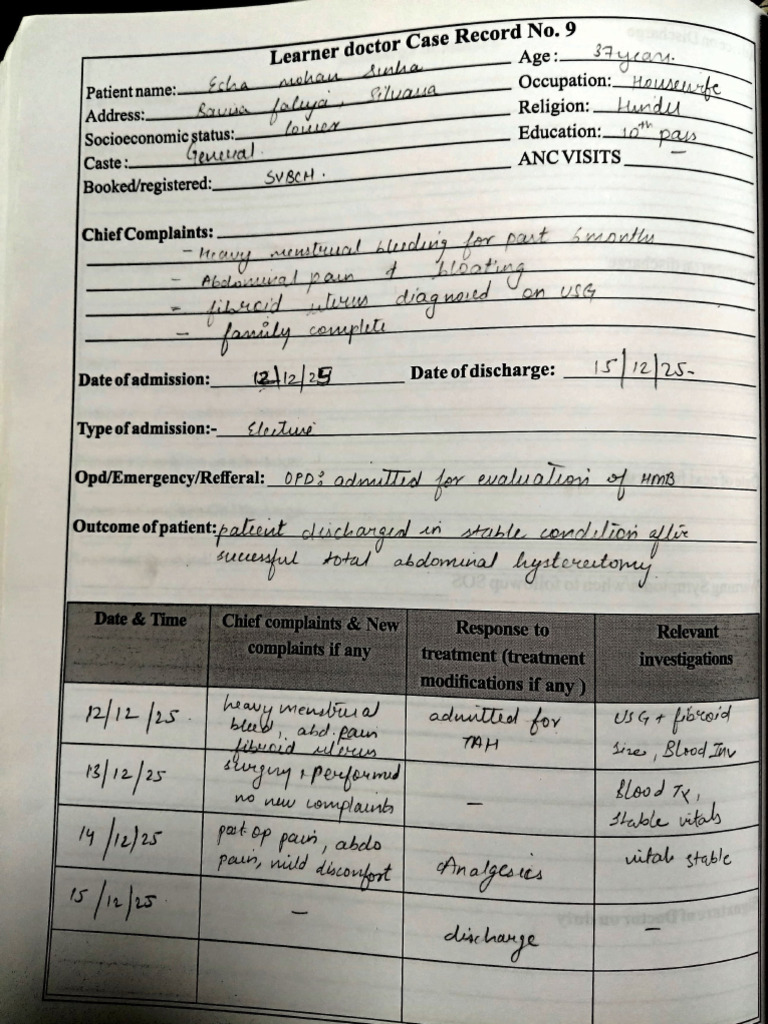 Learner doctor Case Record No. 9
Patient name: Esha mohan Sinha Age: 37 year.
Address: faliya, Silvasa Occupation: Housewife
Socioeconomic status: lower Religion: Hindu
Caste: General. Education: 10th pass
Booked/registered: SVBCH. ANC VISITS —
Chief Complaints:
- Heavy menstrual bleeding for past 6 months
- Abdominal pain & bloating
- fibroid uterus diagnosed on USG
- family complete
Date of admission: 12/12/25 Date of discharge: 15/12/25-
Type of admission:- Elective
Opd/Emergency/Refferal: OPD: admitted for evaluation of HMB
Outcome of patient: patient discharged in stable condition after
successful total abdominal hysterectomy.
Date & Time
Chief complaints & New
complaints if any
Response to
treatment (treatment
modifications if any )
Relevant
investigations
12/12/25.
heavy menstrual
bleed, abd. pain
fibroid uterus
admitted for
TAH
USG + fibroid
size, Blood Inv
13/12/25
surgery performed
no new complaints
—
Blood Tx,
stable vitals
14/12/25
post op pain, abdo
pain, mild discomfort
Analgesics
vitals stable
15/12/25.
—
discharge
—